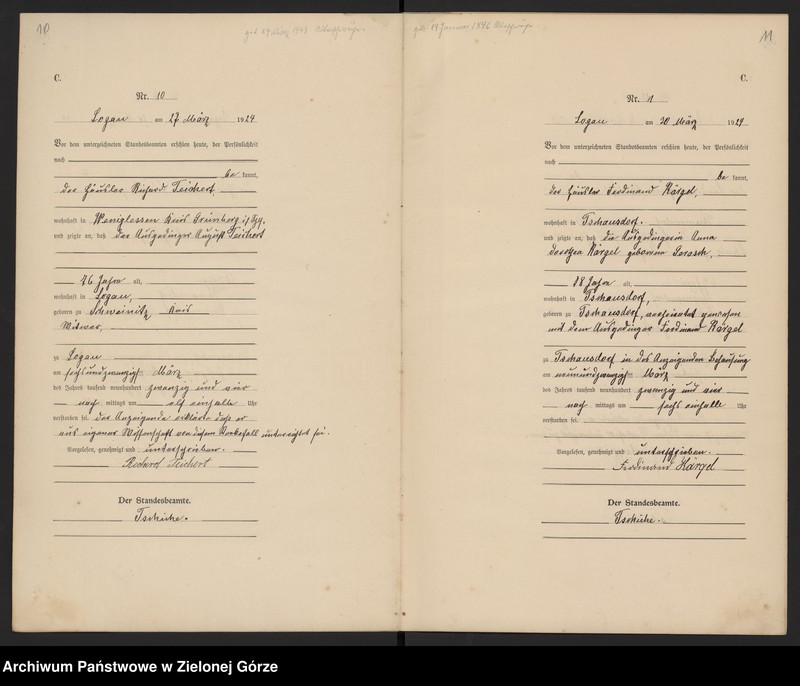 10
C.
Nr. 10
Logau am 27 März 1924
Vor dem unterzeichneten Standesbeamten erschien heute, der Persönlichkeit
nach
be kannt,
der Häusler Richard Teichert,
wohnhaft in Kreis Grünberg
und zeigte an, daß der Ausgedinger August Teichert
76 Jahre alt,
wohnhaft in Logau,
geboren zu Schweinitz, Kreis
Witwer,
zu Logau
am sechsundzwanzigsten März
des Jahres tausend neunhundert zwanzig und vier
nach mittags um elf einhalb Uhr
verstorben sei. Der Anzeigende erklärte daß er
aus eigener Wissenschaft von diesem Sterbefall unterrichtet sei.
Vorgelesen, genehmigt und unterschrieben.
Richard Teichert
Der Standesbeamte.
Tschirche.
11
C.
Nr. 11
Logau am 30 März 1924
Vor dem unterzeichneten Standesbeamten erschien heute, der Persönlichkeit
nach
be kannt,
der Häusler Ferdinand Kärgel,
wohnhaft in Tschausdorf.
und zeigte an, daß die Ausgedingerin Anna
Dorothea Kärgel geborene
78 Jahre alt,
wohnhaft in Tschausdorf,
geboren zu Tschausdorf, verheiratet gewesen
mit dem Ausgedinger Ferdinand Kärgel
zu Tschausdorf in des Anzeigenden Behausung
am neunundzwanzigsten März
des Jahres tausend neunhundert zwanzig und vier
nach mittags um sechs einhalb Uhr
verstorben sei.
Vorgelesen, genehmigt und unterschrieben.
Ferdinand Kärgel
Der Standesbeamte.
Tschirche.
Archiwum Państwowe w Zielonej Górze